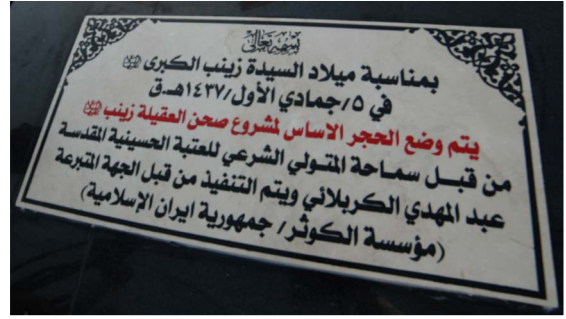 بسمه تعالى
بمناسبة ميلاد السيدة زينب الكبرى
في ٥/جمادي الأول/١٤٣٧هـ.ق
يتم وضع الحجر الاساس لمشروع صحن العقيلة زينب
من قبل سماحة المتولي الشرعي للعتبة الحسينية المقدسة
عبد المهدي الكربلائي ويتم التنفيذ من قبل الجهة المتبرعة
(مؤسسة الكوثر/ جمهورية ايران الإسلامية)